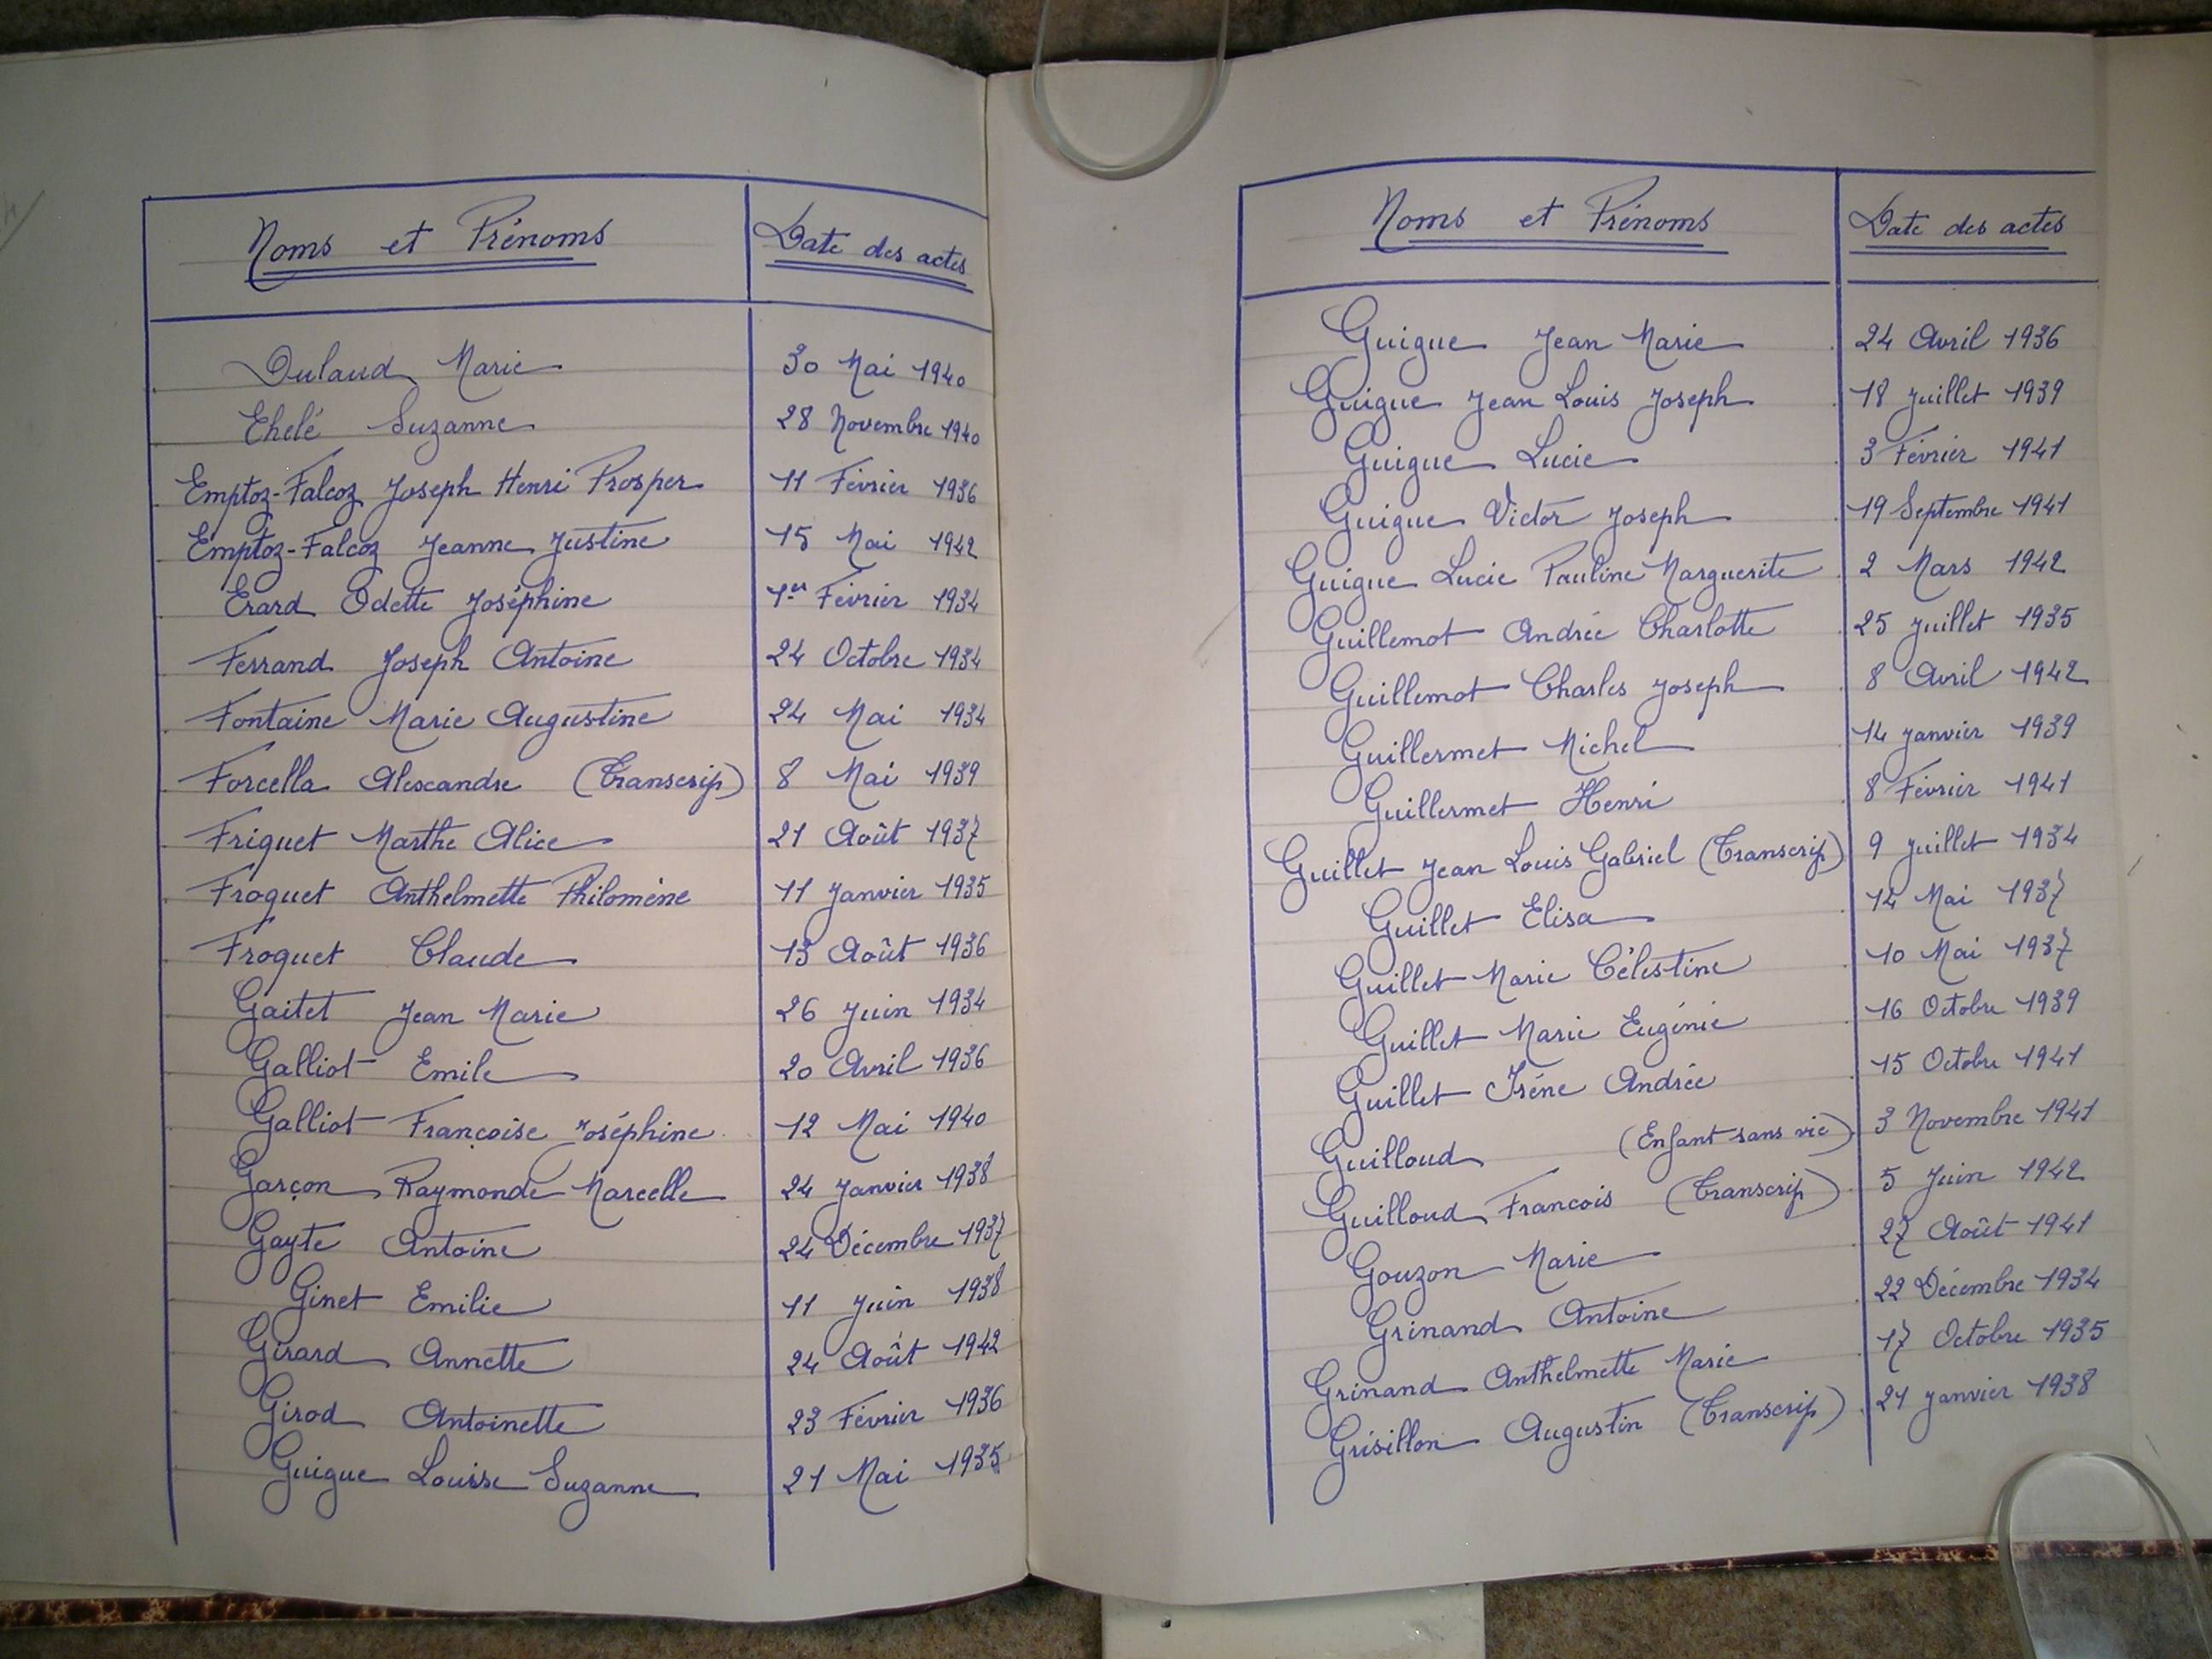 Noms et Prénoms Date des actes
Dulaud Marie 30 Mai 1940
Ehelé Suzanne 28 Novembre 1940
Emptoz-Falcoz Joseph Henri Prosper 11 Février 1936
Emptoz-Falcoz Jeanne Justine 15 Mai 1942
Erard Odette Joséphine 1er Février 1934
Ferrand Joseph Antoine 24 Octobre 1934
Fontaine Marie Augustine 24 Mai 1934
Forcella Alexandre (Transcrip) 8 Mai 1939
Friquet Marthe Alice 21 Août 1937
Froquet Anthelmette Philomène 11 Janvier 1935
Froquet Claude 13 Août 1936
Gaitet Jean Marie 26 Juin 1934
Galliot Emile 20 Avril 1936
Galliot Françoise Joséphine 12 Mai 1940
Garçon Raymonde Marcelle 24 Janvier 1938
Gayte Antoine 24 Décembre 1937
Ginet Emilie 11 Juin 1938
Girard Annette 24 Août 1942
Girod Antoinette 23 Février 1936
Guigue Louisse Suzanne 21 Mai 1935
Noms et Prénoms Date des actes
Guigue Jean Marie 24 Avril 1936
Guigue Jean Louis Joseph 18 Juillet 1939
Guigue Lucie 3 Février 1941
Guigue Victor Joseph 19 Septembre 1941
Guigue Lucie Pauline Marguerite 2 Mars 1942
Guillemot Andrée Charlotte 25 Juillet 1935
Guillemot Charles Joseph 8 Avril 1942
Guillermet Michel 14 Janvier 1939
Guillermet Henri 8 Février 1941
Guillet Jean Louis Gabriel (Transcrip) 9 Juillet 1934
Guillet Elisa 14 Mai 1937
Guillet Marie Célestine 10 Mai 1937
Guillet Marie Eugénie 16 Octobre 1939
Guillet Irène Andrée 15 Octobre 1941
Guilloud (Enfant sans vie) 3 Novembre 1941
Guilloud Francois (Transcrip) 5 Juin 1942
Gouzon Marie 27 Août 1941
Grinand Antoine 22 Décembre 1934
Grinand Anthelmette Marie 17 Octobre 1935
Grisillon Augustin (Transcrip) 21 Janvier 1938